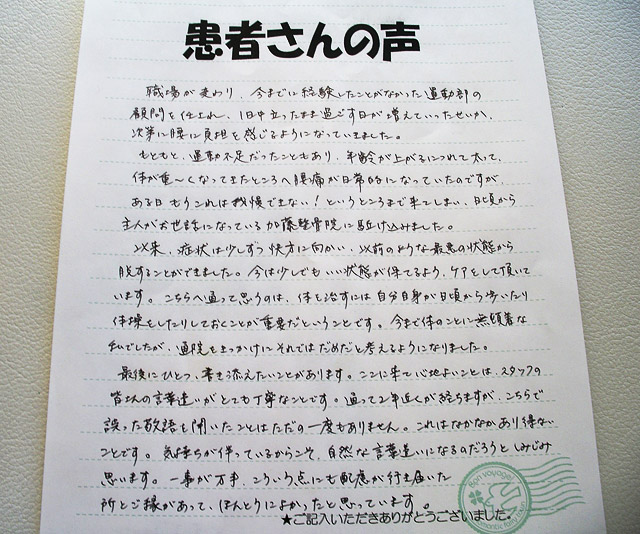 患者さんの声
職場が変わり、今までに経験したことがなかった運動部の
顧問を任され、1日中立ったまま過ごす日が増えていったせいか、
次第に腰に負担を感じるようになっていきました。
もともと、運動不足だったこともあり、年齢が上がるにつれて太って、
体が重〜くなってきたところへ腰痛が日常的になっていたのですが
ある日もうこれは我慢できない！というところまで来てしまい、日頃から
主人がお世話になっている加藤整骨院に駆け込みました。
以来、症状は少しずつ快方に向かい、以前のような最悪の状態から
脱することができました。今は少しでもいい状態が保てるよう、ケアをして頂いて
います。こちらへ通って思うのは、体を治すには自分自身が日頃から歩いたり
体操をしたりしておくことが重要だということです。今まで体のことに無頓着な
私でしたが、通院をきっかけにそれではだめだと考えるようになりました。
最後にひとつ、書き添えたいことがあります。ここに来て心地よいことは、スタッフの
皆さんの言葉遣いがとても丁寧なことです。通って2年近くが経ちますが、こちらで
誤った敬語を聞いたことはただの一度もありません。これはなかなかあり得ない
ことです。気持ちが伴っているからこそ、自然な言葉遣いになるのだろうとしみじみ
思います。一事が万事、こういう点にも配慮が行き届いた
所とご縁があって、ほんとうによかったと思っています。
★ご記入いただきありがとうございました。
Bon voyage!